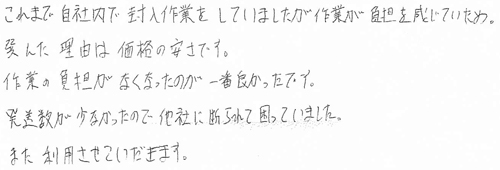 これまで自社内で封入作業をしていましたが作業が負担を感じていため。
選んだ理由は価格の安さです。
作業の負担がなくなったのが一番良かったです。
発送数が少なかったので他社に断られて困っていました。
また利用させていただきます。